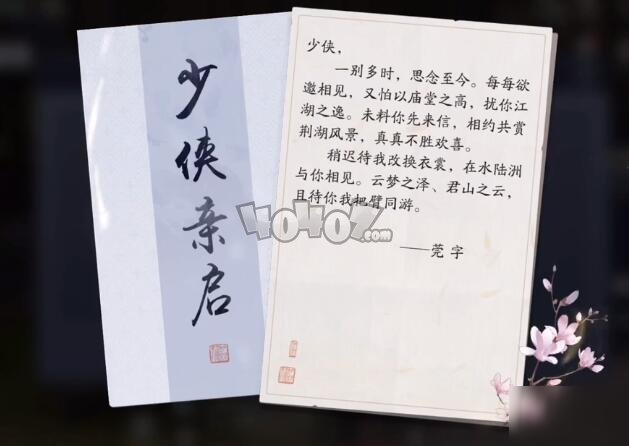 少侠亲启
少侠，
一别多时，思念至今。每每欲
邀相见，又怕以庙堂之高，扰你江
湖之逸。未料你先来信，相约共赏
荆湖风景，真真不胜欢喜。
稍迟待我改换衣裳，在水陆洲
与你相见。云梦之泽、君山之云，
且待你我把臂同游。
——莞 字
40407.com